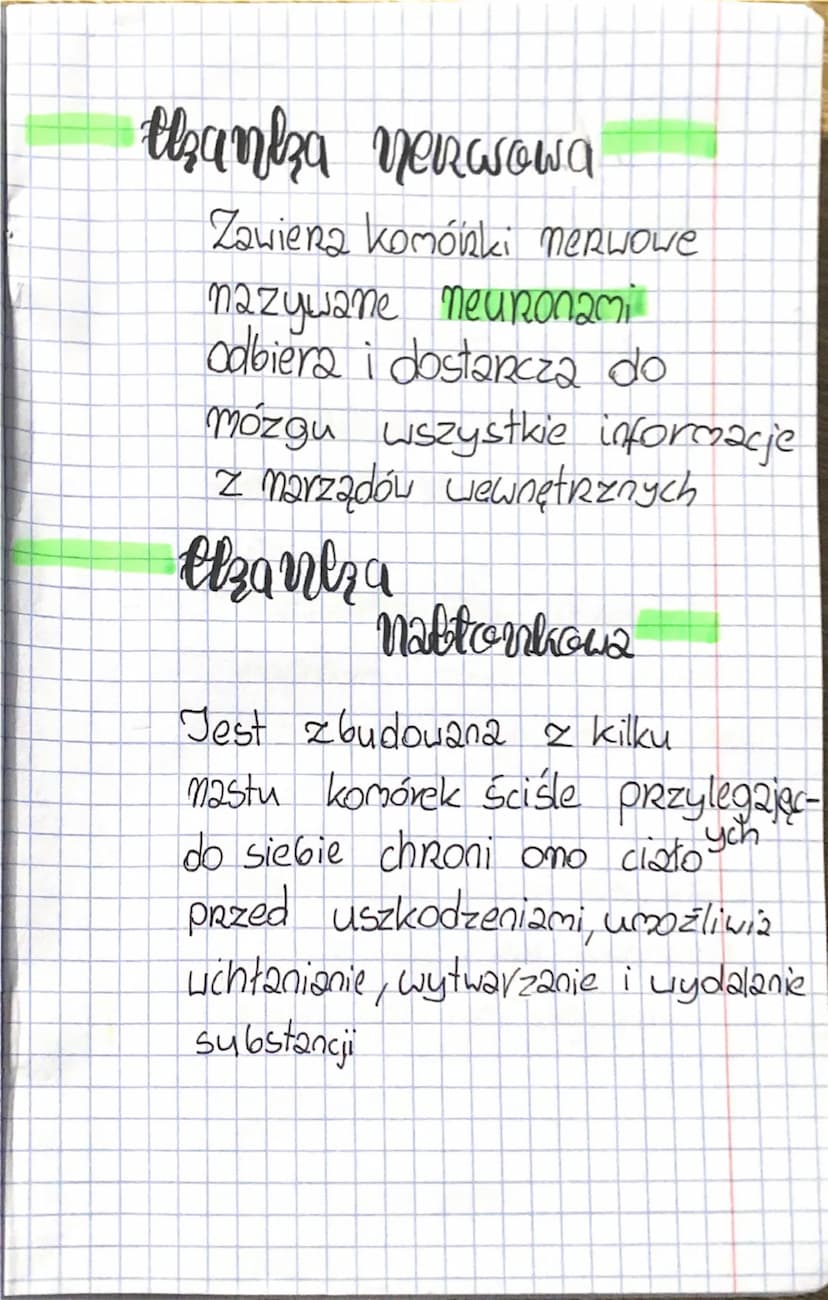 tkanka nerwowa
Zawiera komórki nerwowe
nazywane neuronami
odbiera i dostarcza do
mózgu wszystkie informacje
z narządów wewnętrznych
tkanka
nabłonkowa
Jest zbudowana z kilku
nastu komórek ściśle przylegając-
ych
do siebie chroni ono ciało
przed uszkodzeniami, umożliwia
wchłanianie, wytwarzanie i wydalanie
substancji